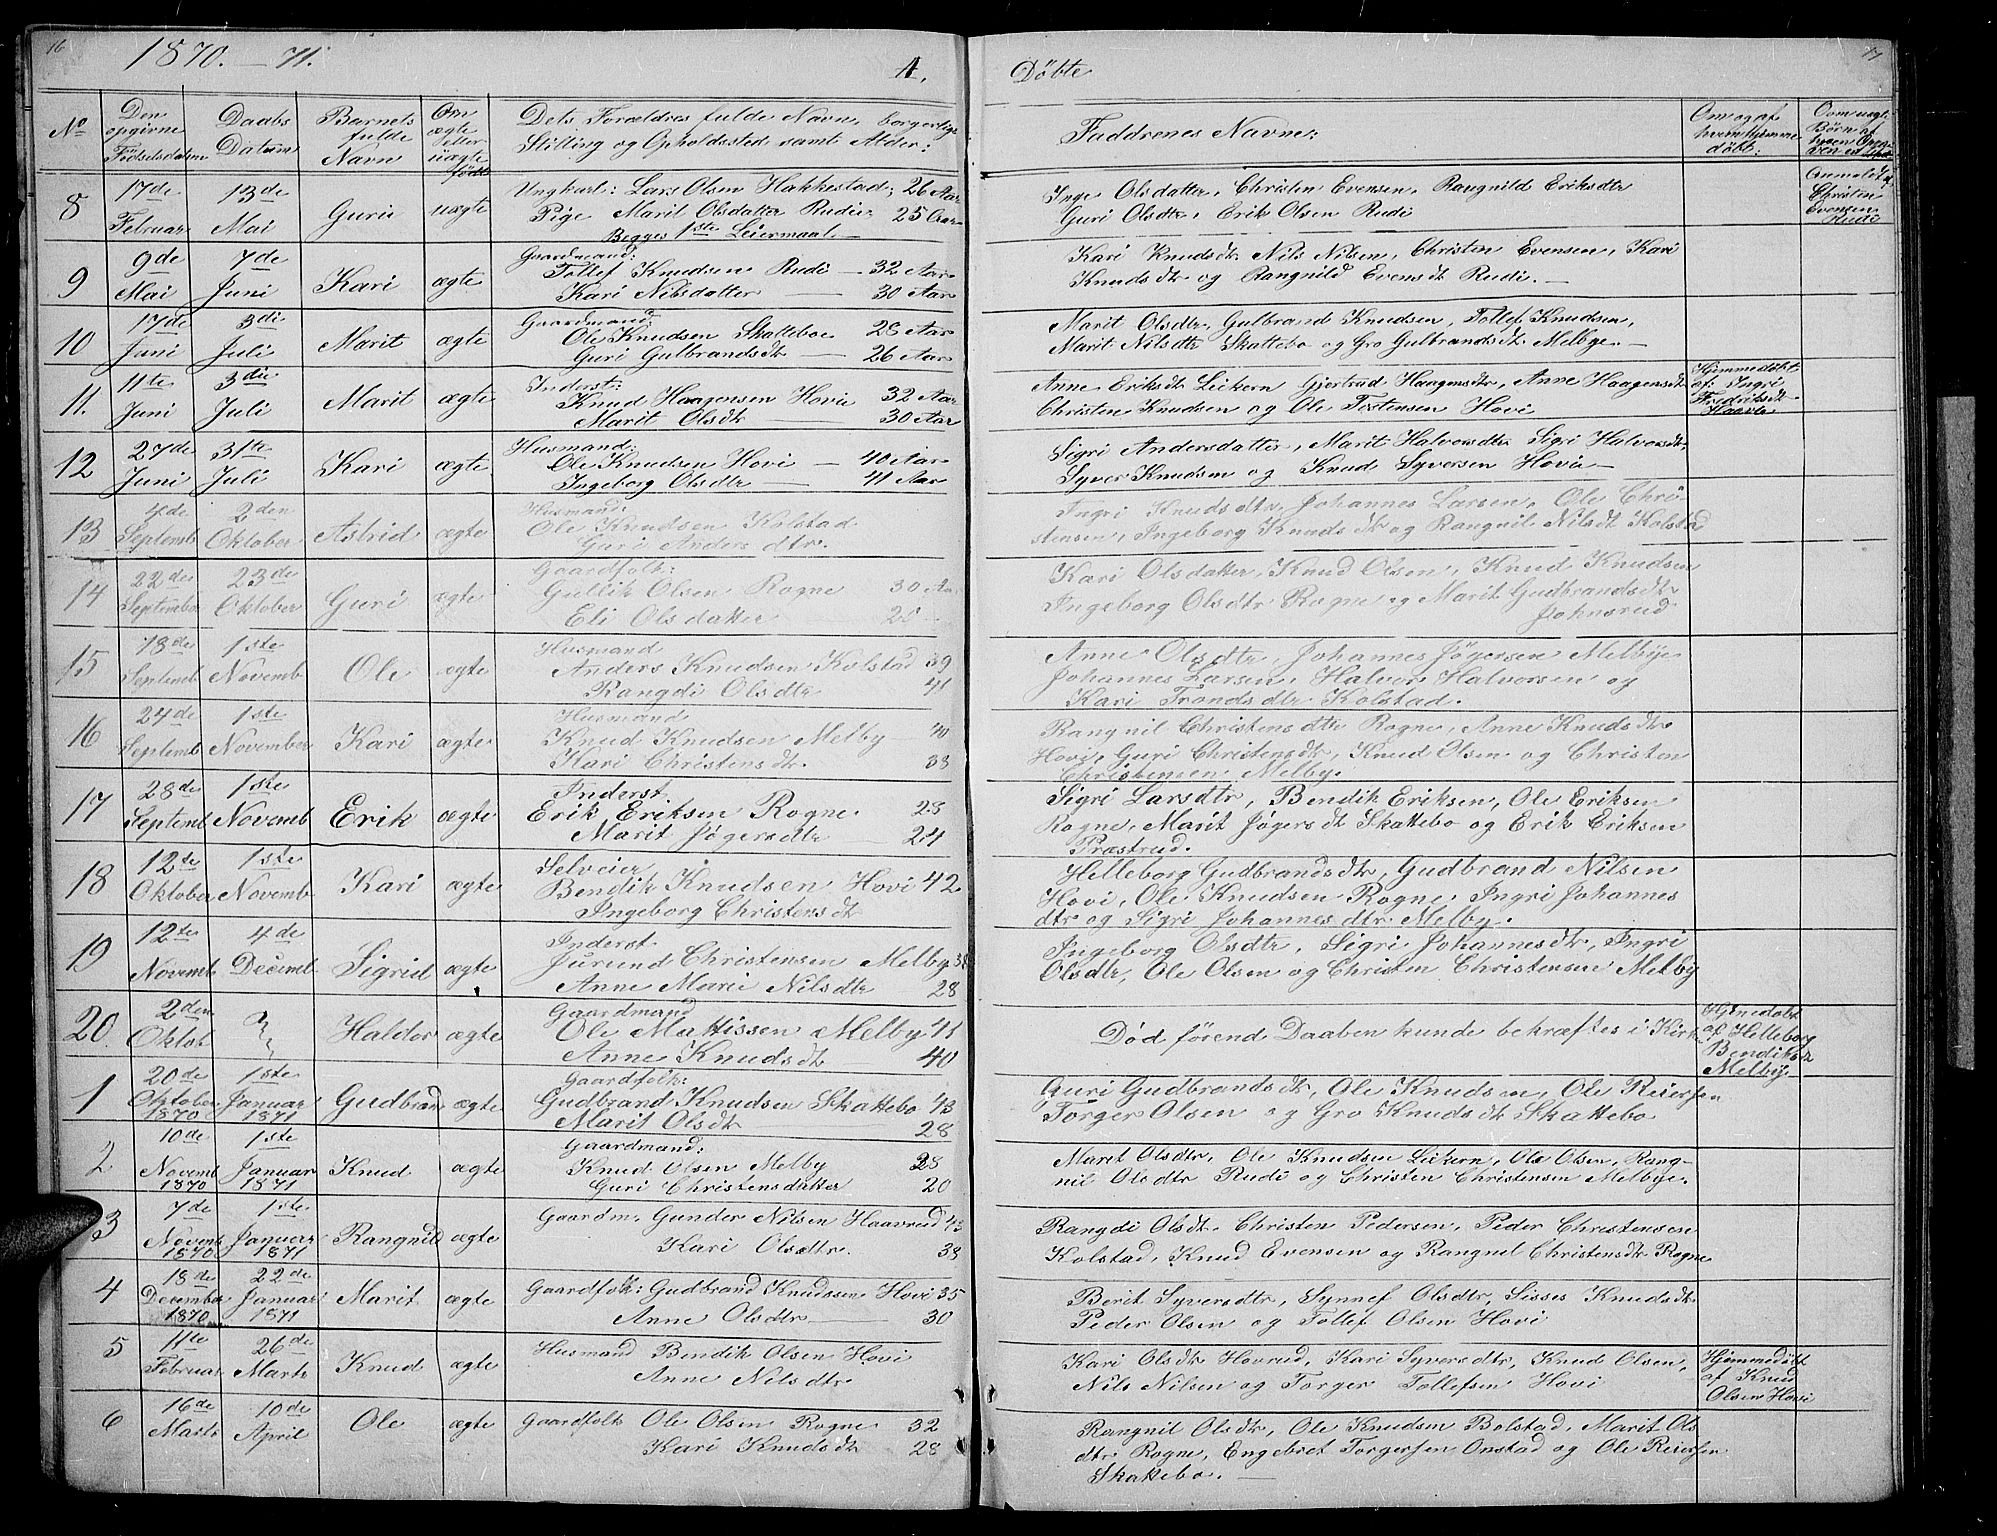 16
1870.—71.
A.
Döbte
17
No
Den opgivne Födselsdatum
Daabs Datum
Barnets fulde Navn
Om ægte eller uægte födt
Dets Forældres fulde Navn, borgerlige
Stilling og Opholdssted samt Alder:
Faddrenes Navne:
Om og af hvem hjemme döbt:
8
17de Februar
13de Mai
Guri
uægte
Ungkarl: Lars Olsen Hakkestad; 26 Aar
Pige Marit Olsdatter Rudi: 25 Aar
Begges 1ste Leiermaal.—
Inge Olsdatter, Christen Evensen, Rangnild Eriksdtr
Guri Olsdtr, Erik Olsen Rudi
Anmeldt af Christen Evensen Rudi
9
9de Mai
7de Juni
Kari
ægte
Gaardmand:
Tollef Knudsen Rudi — 32 Aar
Kari Nilsdatter — 30 Aar
Kari Knudsdtr. Nils Nilsen, Christen Evensen, Kari
Knudsdtr og Rangnild Evensdtr Rudi.—
10
17de Juni
3die Juli
Marit
ægte
Gaardmand:
Ole Knudsen Skattebo 28 Aar
Guri Gulbrandsdtr — 26 Aar
Marit Olsdtr, Gulbrand Knudsen, Tollef Knudsen,
Marit Nilsdtr Skattebo og Gro Gulbrandsdtr. Melbye.—
11.
11te Juni
3die Juli
Marit
ægte
Inderst:
Knud Haagensen Hovie 32 Aar
Marit Olsdtr — 30 Aar
Anne Eriksdtr Leikern Gjertrud Haagensdtr, Anne Haagensdtr
Christen Knudsen og Ole Torstensen Hovi
Hjemmedöbt af: Ingri Fredriksdtr Haave
12
27de Juni
31te Juli
Kari
ægte
Husmand:
Ole Knudsen Hovi — 40 Aar
Ingeborg Olsdtr — 41 Aar
Sigri Andersdatter, Marit Halvorsdtr Sigri Halvorsdtr.
Syver Knudsen og Knud Syversen Hovie—
13
4de Septemb
2den Oktober
Astrid
ægte
Husmand:
Ole Knudsen Kolstad
Guri Andersdtr.
Ingri Knudsdtr, Johannes Larsen, Ole Chri
stensen, Ingeborg Knudsdtr og Rangnil Nilsdt Kolstad
14
22de Septembr
23de Oktober
Guri
ægte
Gaardfolk:
Gullik Olsen Rogne 30 Aar
Eli Olsdatter — 20 —
Kari Olsdatter, Knud Olsen, Knud Knudsen
Ingeborg Olsdtr Rogne og Marit Gudbrandsdtr
Johnsrud
15
18de Septemb
1ste Novemb
Ole
ægte
Husmand
Anders Knudsen Kolstad 39
Rangdi Olsdtr 41
Anne Olsdtr, Johannes Jögersen Melbye
Johannes Larsen, Halvor Halvorsen og
Kari Trondsdtr Kolstad.
16
24de Septemb
1ste November
Kari
ægte
Husmand
Knud Knudsen Melby 40
Kari Christensdtr. 38
Rangnil Christensdtr Rogne, Anne Knudsdtr
Hovi, Guri Christensdtr, Knud Olsen og Christen
Christensen Melby.
17
28de Septemb
1ste Novemb
Erik
ægte
Inderst
Erik Eriksen Rogne. 28
Marit Jögersdtr — 24
Sigri Larsdtr, Bendik Eriksen, Ole Eriksen
Rogne, Marit Jögersdt Skattebo og Erik Eriksen
Præstrud.
18
12te Oktober
1ste Novemb
Kari
ægte
Selveier
Bendik Knudsen Hovi 42
Ingeborg Christensdtr
Helleborg Gudbrandsdtr, Gudbrand Nilsen
Hovi, Ole Knudsen Rogne, Ingri Johannes
dtr og Sigri Johannesdtr Melby.
19
12te Novemb
4de Decemb.
Sigrid
ægte
Inderst
Jurund Christensen Melby
Anne Marie Nilsdtr 28
Ingeborg Olsdtr, Sigri Johannesdtr, Ingri
Olsdtr, Ole Olsen og Christen Christensen Melby
20
2den Oktob
Haldor
ægte
Gaardmand
Ole Mattissen Melby 41
Anne Knudsdtr 40
Död förend Daaben kunde bekræftes i Kirk
Hjemedöbt af Helleborg Bendiksdtr Melby
1
20de Oktober 1870
1ste Januar 1871
Gudbran
ægte
Gaardfolk:
Gudbrand Knudsen Skattebo 43
Marit Olsdtr — 28
Guri Gudbrandsdtr, Ole Knudsen, Ole Reiersen
Torger Olsen og Gro Knudsdtr Skattebo
2
10de Novemb 1870
1ste Januar 1871
Knud
ægte
Gaardmand:
Knud Olsen Melby 28
Guri Christensdatter 20
Marit Olsdtr, Ole Knudsen Leikern, Ole Olsen, Rang-
nil Olsdtr Rudi og Christen Christensen Melbye.
3
7de Novemb 1870
1ste Januar 1871
Rangnild
ægte
Gaardm. Gunder Nilsen Haavrud 43
Kari Olsdtr. 38
Rangdi Olsdtr. Christen Pedersen, Peder Christensen
Kolstad, Knud Evensen og Rangnil Christensdtr Rogne
4
18de December 1870
22de Januar 1871
Marit
ægte
Gaardfolk: Gudbrand Knudssen Hovi 35
Anne Olsdtr — 30
Berit Syversdtr, Synnef Olsdtr, Sisses Knudsdtr
Peder Olsen og Tollef Olsen Hovi
5
11te Februar
26de Marts
Knud
ægte
Husmand Bendik Olsen Hovi
Anne Nilsdtr
Kari Olsdtr Hovrud, Kari Syversdtr, Knud Olsen,
Nils Nilsen og Torger Tollefsen Hovi
Hjemmedöbt af Knud Olsen Hovi
6
16de Marts
10de April
Ole
ægte
Gaardfolk Ole Olsen Rogne 32
Kari Knudsdtr 28
Rangnil Olsdtr, Ole Knudsen Bolstad, Marit Ols
dtr Rogne, Engebret Torgersen Onstad og Ole Reiersen
Skattebo.—